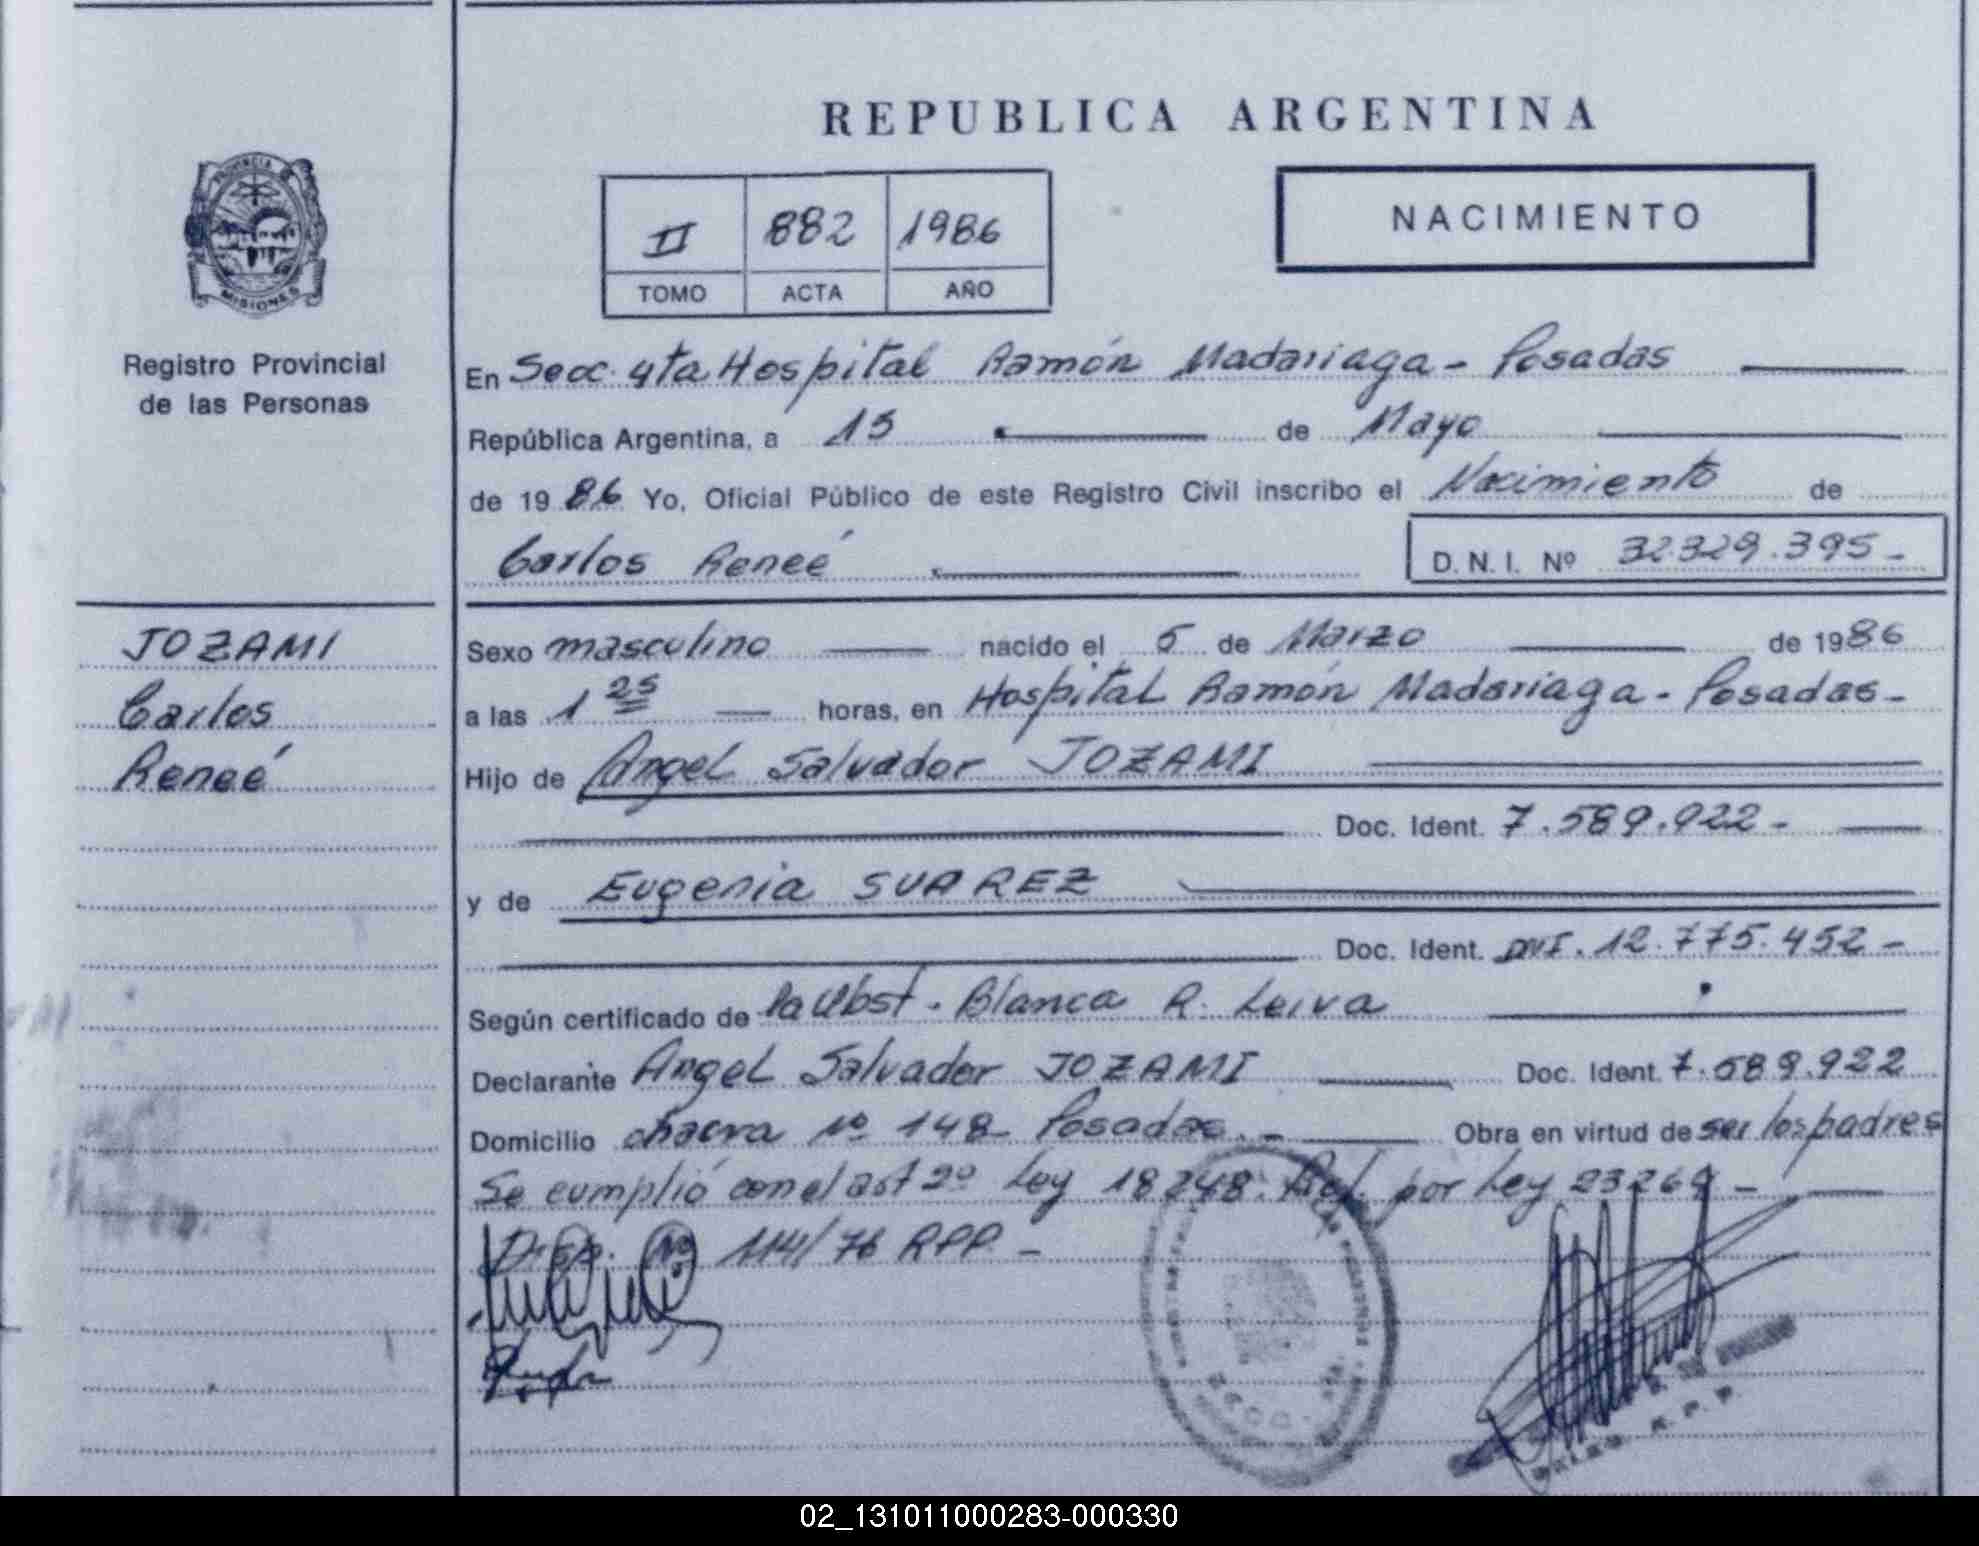 REPUBLICA ARGENTINA
PROVINCIA DE
MISIONES
Registro Provincial
de las Personas
II 882 1986
TOMO ACTA AÑO
NACIMIENTO
En Secc. 4ta Hospital Ramón Madariaga - Posadas
República Argentina, a 15 de Mayo
de 19 86 Yo, Oficial Público de este Registro Civil inscribo el Nacimiento de
Carlos Reneé
D. N. I. Nº 32.329.395-
JOZAMI
Carlos
Reneé
Sexo masculino nacido el 5 de Marzo de 1986
a las 1 25 horas, en Hospital Ramón Madariaga - Posadas-
Hijo de Angel Salvador JOZAMI
Doc. Ident. 7.589.922-
y de Eugenia SUAREZ
Doc. Ident. DNI. 12.775.452-
Según certificado de la Obst. Blanca R. Leiva
Declarante Angel Salvador JOZAMI Doc. Ident. 7.589.922
Domicilio chacra nº 148 Posadas.- Obra en virtud de ser los padres
Se cumplió con el art 2º Ley 18248. Ref. por Ley 23264 -
Disp. Nº 114/76 RPP -
R. P. P.
02_131011000283-000330